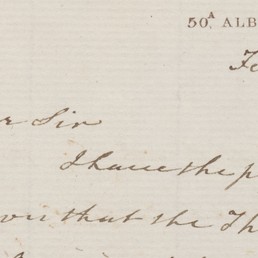 50A, ALB
Fe
r Sir
I have the p
you that the Th